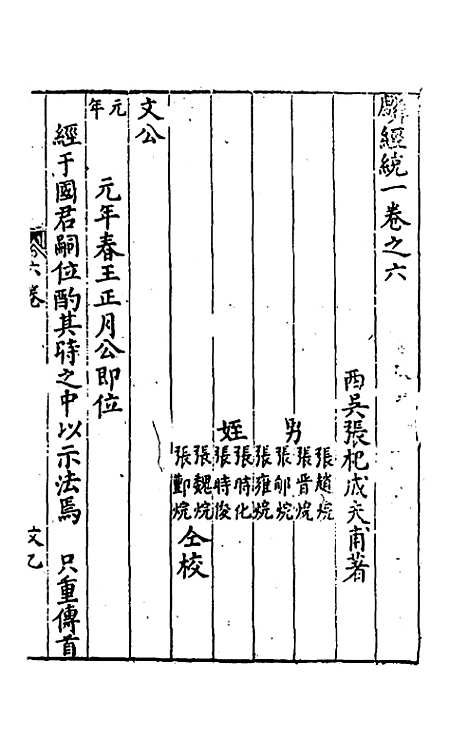 麟經統一卷之六
西吳張杞成夫甫著
男
張趙烷
張晉烷
張郇烷
張雍烷
姪
張時化
張時俊
張魏烷
張酆烷
仝校
文公
元年
元年春王正月公即位
經于國君嗣位酌其時之中以示法焉 只重傳首
六卷
文乙